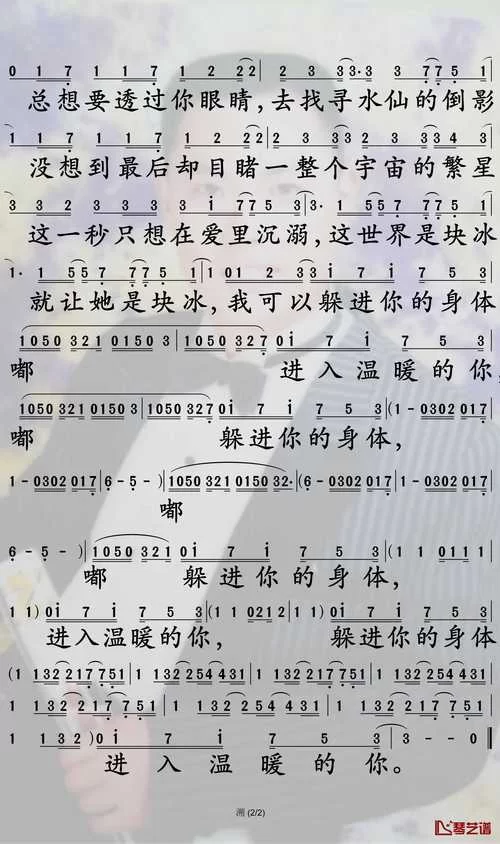 0 1 7 1 1 7 1 2 2 2 | 2 3 3 3· 3 3 7 7 5 1 |
总想要透过你眼睛,去找寻水仙的倒影
1 1 7 1 1 7 1 2 2 2 | 2 3 3 3 3 3 3 4 3
没想到最后却目睹一整个宇宙的繁星
3 3 2 3 3 3 3 i 7 5 3 3 | 3·
这一秒只想在爱里沉溺,这世界是块冰
就让她是块冰,我可以躲进你的身体
1050 321 0150 3 | 1050 321 0150 327 0i 7 i 7 5 3
嘟 进入温暖的你,
1050 321 0150 3 | 1050 321 0150 327 0i 7 i 7 5 3 | (1 - 0302 017 |
嘟 躲进你的身体,
1 - 0302 017 | 6 - 5 - ) | 1050 321 0150 32· | (6 - 5 - | 1 - 0302 017 |
嘟
6 - 5 - ) | 1050 321 0i 7 i 7 5 3 | (1 1 0 1 1 1 |
嘟 躲进你的身体,
1 1 ) 0i 7 i 7 5 3 | (1 1 021 2 | 1 1 ) 0i 7 i 7 5 3 |
进入温暖的你, 躲进你的身体
(1 132 217 751 | 1 132 254 431 | 1 132 217 751 | 1 132 254 431 |
1 132 217 751 | 1 132 254 431 | 1 132 254 431 | 1 132 217 751 |
1 132 ) 0i 7 i 7 5 3 | 3 - - 0 ‖
进入温暖的你。
溯 (2/2)
琴艺谱